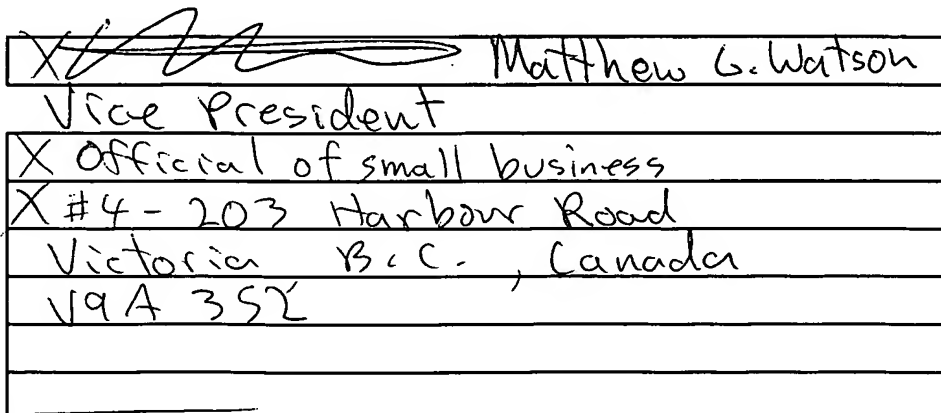 X Matthew G. Watson
Vice President
X Official of small business
X #4 - 203 Harbour Road
Victoria B.C., Canada
V9A 3S2